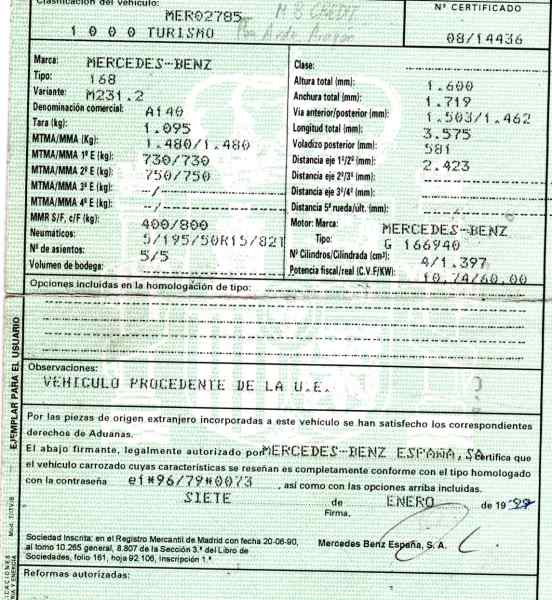 Clasificación del vehículo:
MER02785
M B CREDIT
1 0 0 0 TURISMO
Nº CERTIFICADO
08/14436
Marca: MERCEDES-BENZ
Tipo: 168
Variante: M231.2
Denominación comercial: A140
Tara (kg): 1.095
MTMA/MMA (Kg): 1.480/1.480
MTMA/MMA 1º E (kg): 730/730
MTMA/MMA 2º E (kg): 750/750
MTMA/MMA 3º E (kg): --/--
MTMA/MMA 4º E (kg): --/--
MMR S/F, c/F (kg): 400/800
Neumáticos: 5/195/50R15/82T
Nº de asientos: 5/5
Volumen de bodega:
Clase:
Altura total (mm): 1.600
Anchura total (mm): 1.719
Via anterior/posterior (mm): 1.503/1.462
Longitud total (mm): 3.575
Voladizo posterior (mm): 581
Distancia eje 1º/2º (mm): 2.423
Distancia eje 2º/3º (mm):
Distancia eje 3º/4º (mm):
Distancia 5ª rueda/últ. (mm):
Motor: Marca: MERCEDES-BENZ
Tipo: G 166940
Nº Cilindros/Cilindrada (cm³): 4/1.397
Potencia fiscal/real (C.V.F/KW): 10,74/60,00
Opciones incluidas en la homologación de tipo:
EJEMPLAR PARA EL USUARIO
Observaciones:
VEHICULO PROCEDENTE DE LA U.E.
Por las piezas de origen extranjero incorporadas a este vehículo se han satisfecho los correspondientes
derechos de Aduanas.
El abajo firmante, legalmente autorizado por MERCEDES-BENZ ESPAÑA, SA certifica que
el vehículo carrozado cuyas características se reseñan es completamente conforme con el tipo homologado
con la contraseña e1*96/79*0073 , así como con las opciones arriba incluidas.
SIETE de ENERO de 19 99
Firma,
Sociedad Inscrita: en el Registro Mercantil de Madrid con fecha 20-06-90,
al tomo 10.265 general, 8.807 de la Sección 3.ª del Libro de
Sociedades, folio 161, hoja 92.106, Inscripción 1.ª
Mercedes Benz España, S. A.
Reformas autorizadas: